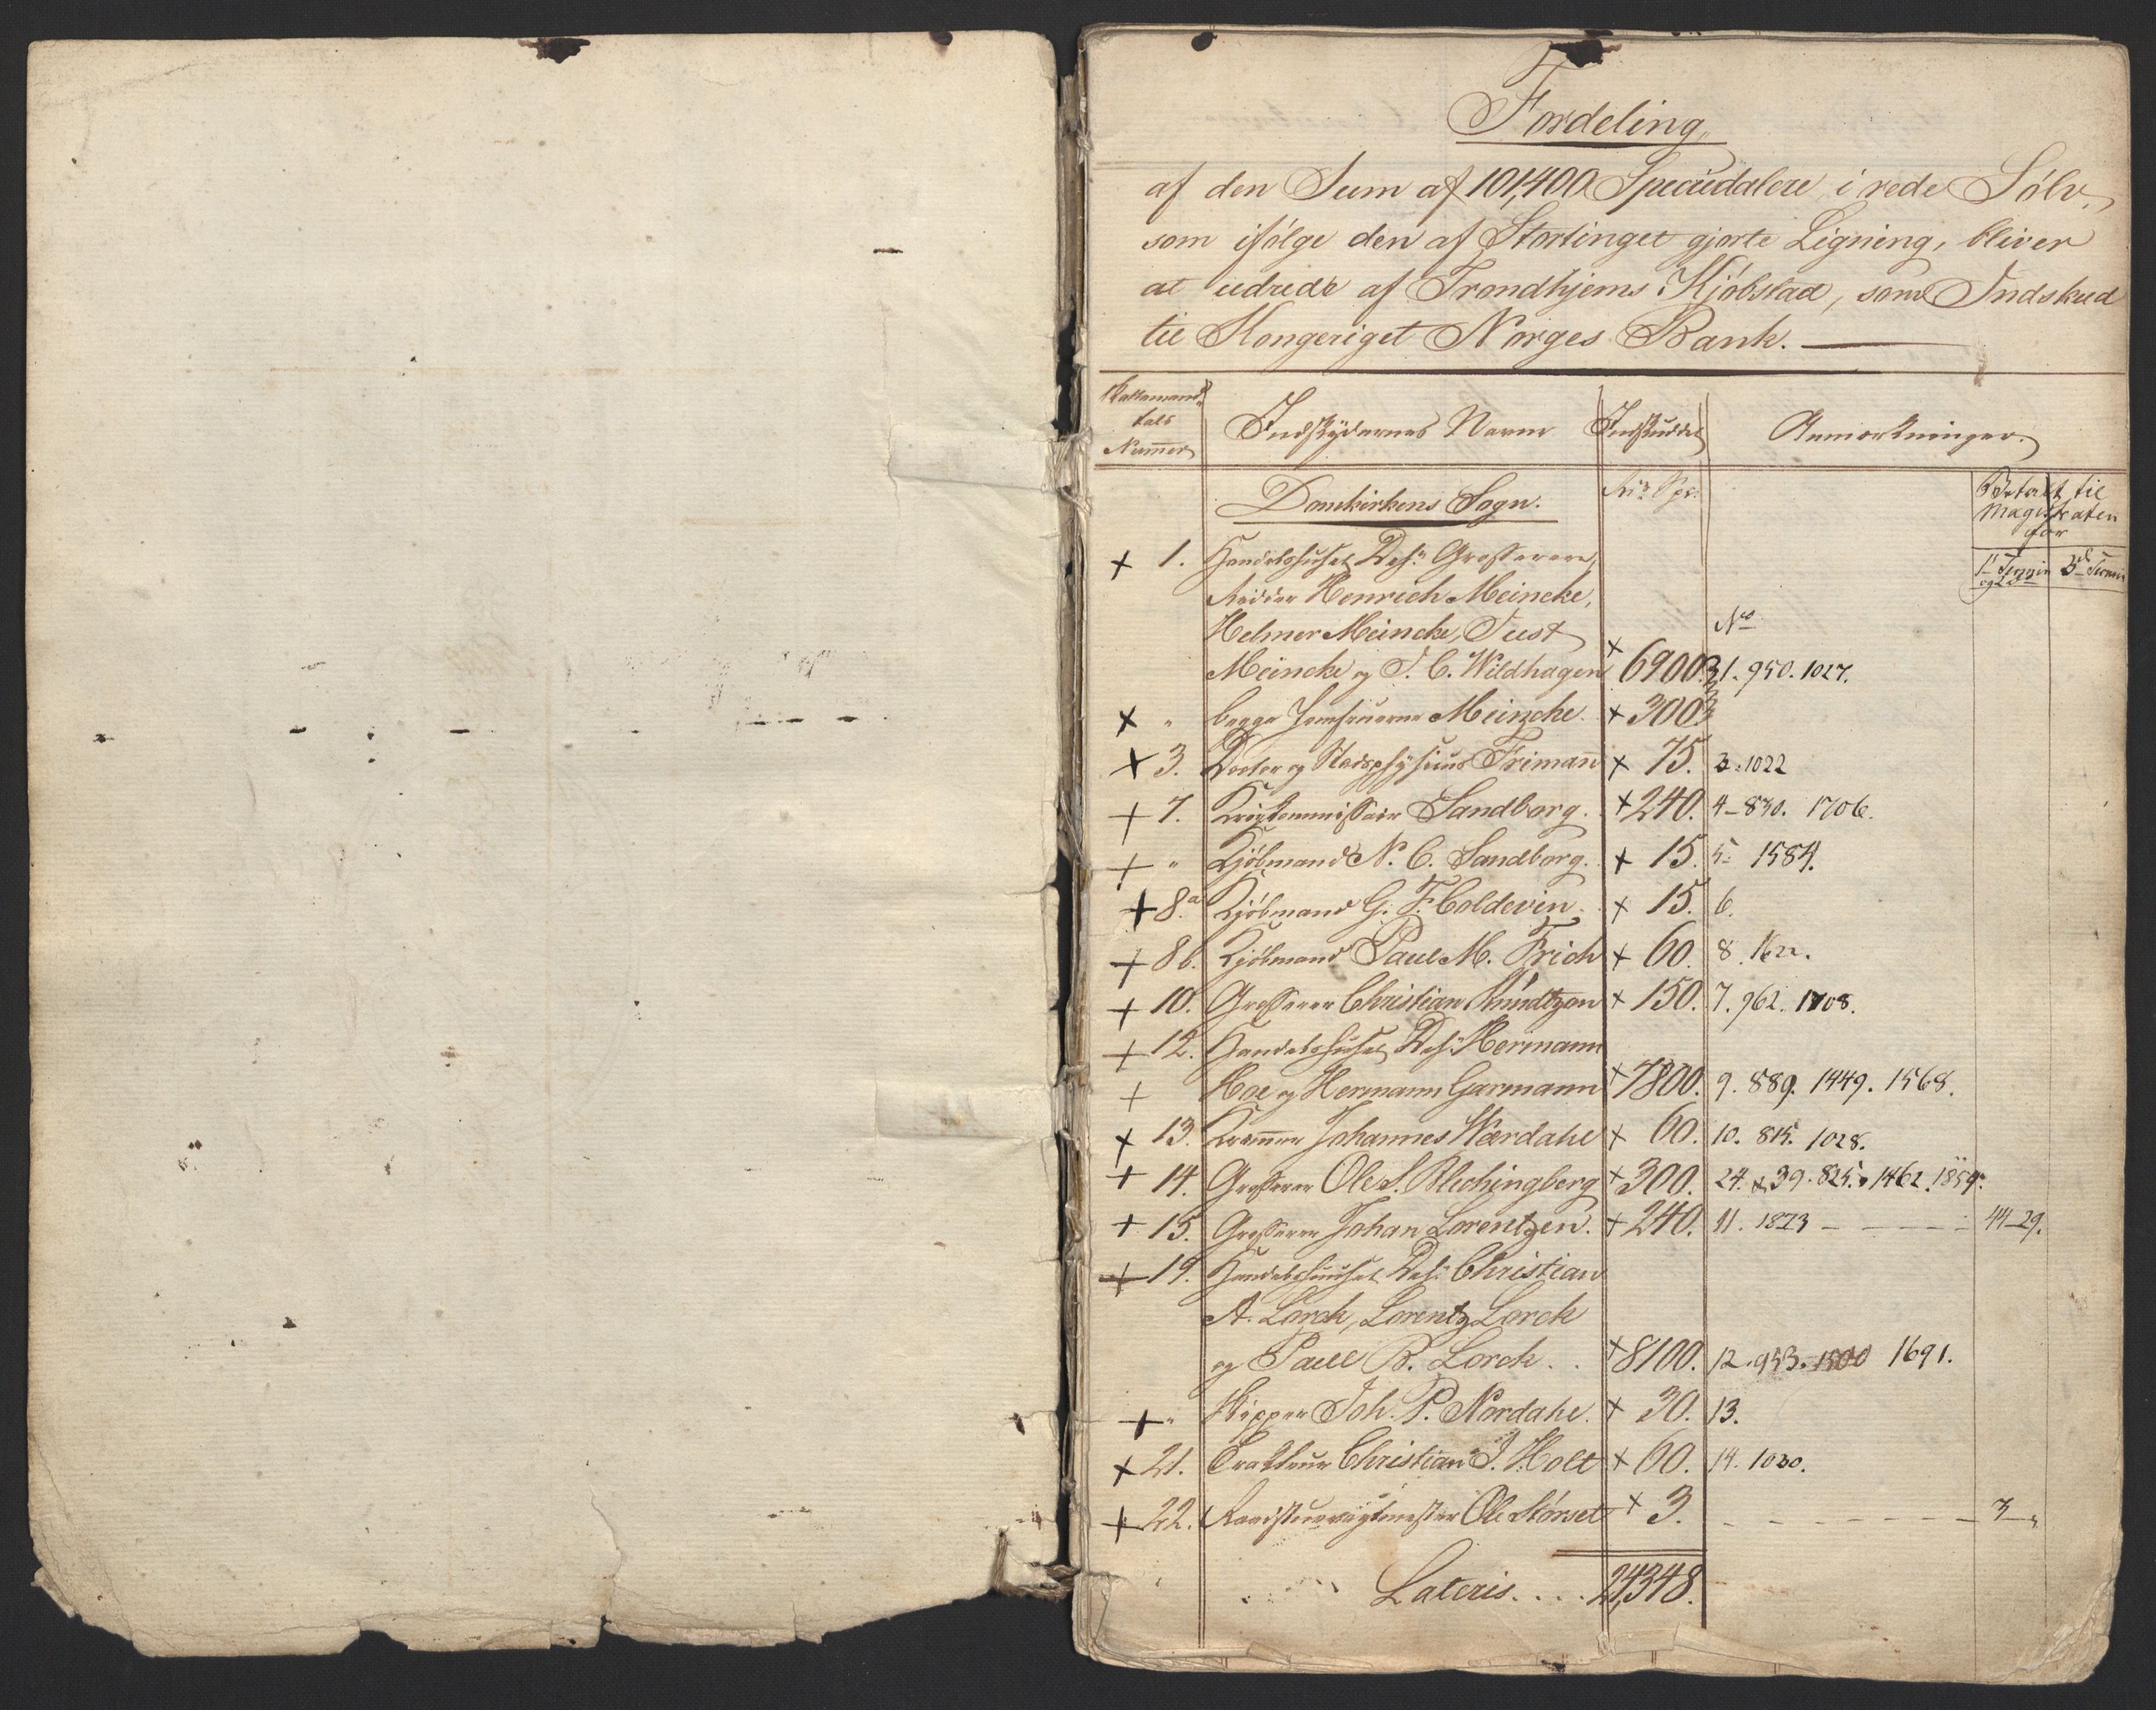 Fordeling
af den Sum af 101,400 Speciedalere i rede Sølv,
som ifølge den af Stortinget gjorte Ligning, bliver
at udrede af Trondhjems Kjöbstad, som Indskud
til Kongeriget Norges Bank.
Skattemand-
tals
Nummer
Indskydernes Navne
Indskuddet
Anmærkninger.
Domkirkens Sogn.
Rd. Spc.
Betalt til
Magistraten
for
1ste Termin 3die Termin
og 2den
+ 1. Handelshuset Dhrr. Grosserere,
Ridder Henrich Meincke,
Helmer Meincke, Just No
Meincke og J. C. Wildhagen + 6900. 31. 950. 1027.
+ " begge Jomfruerne Meincke. + 300.
+ 3. Doctor og Stadsphysicus Frimann + 75. 3. 1022
+ 7. Krigskommissair Sandborg. + 240. 4 - 830. 1706.
+ " Kjöbmand N. C. Sandborg. + 15. 5. 1584.
+ 8.a Kjöbmand G. F. Coldevin. + 15. 6.
+ 8b. Kjöbmand Paul M. Frich + 60. 8. 1622.
+ 10. Grosserer Christian Knudtzon + 150. 7. 962. 1708.
+ 12. Handelshuset Dhrr. Hermann
+ Hoe og Hermann Garmann + 7800. 9. 889. 1449. 1568.
+ 13. Kræmmer Johannes Wærdahl + 60. 10. 815. 1028.
+ 14. Grosserer Ole S. Blichingberg + 300. 24. & 39. 825. 1462. 1859.
+ 15. Grosserer Johan Lorentzen. + 240. 11. 1873 - - - - 44-29.
+ 19. Handelshuuset Dhrr. Christian
A. Lorck, Lorentz Lorck
og Paul B. Lorck. . + 8100. 12. 953. 1500 1691.
+ " Skipper Joh. P. Nordahl. + 30. 13.
+ 21. Tracteur Christian J. Holt + 60. 14. 1030.
+ 22. Raadstuevagtmester Ole Störset + 3. - - - - - - - 3 "
Lateris. . . . 24,348.